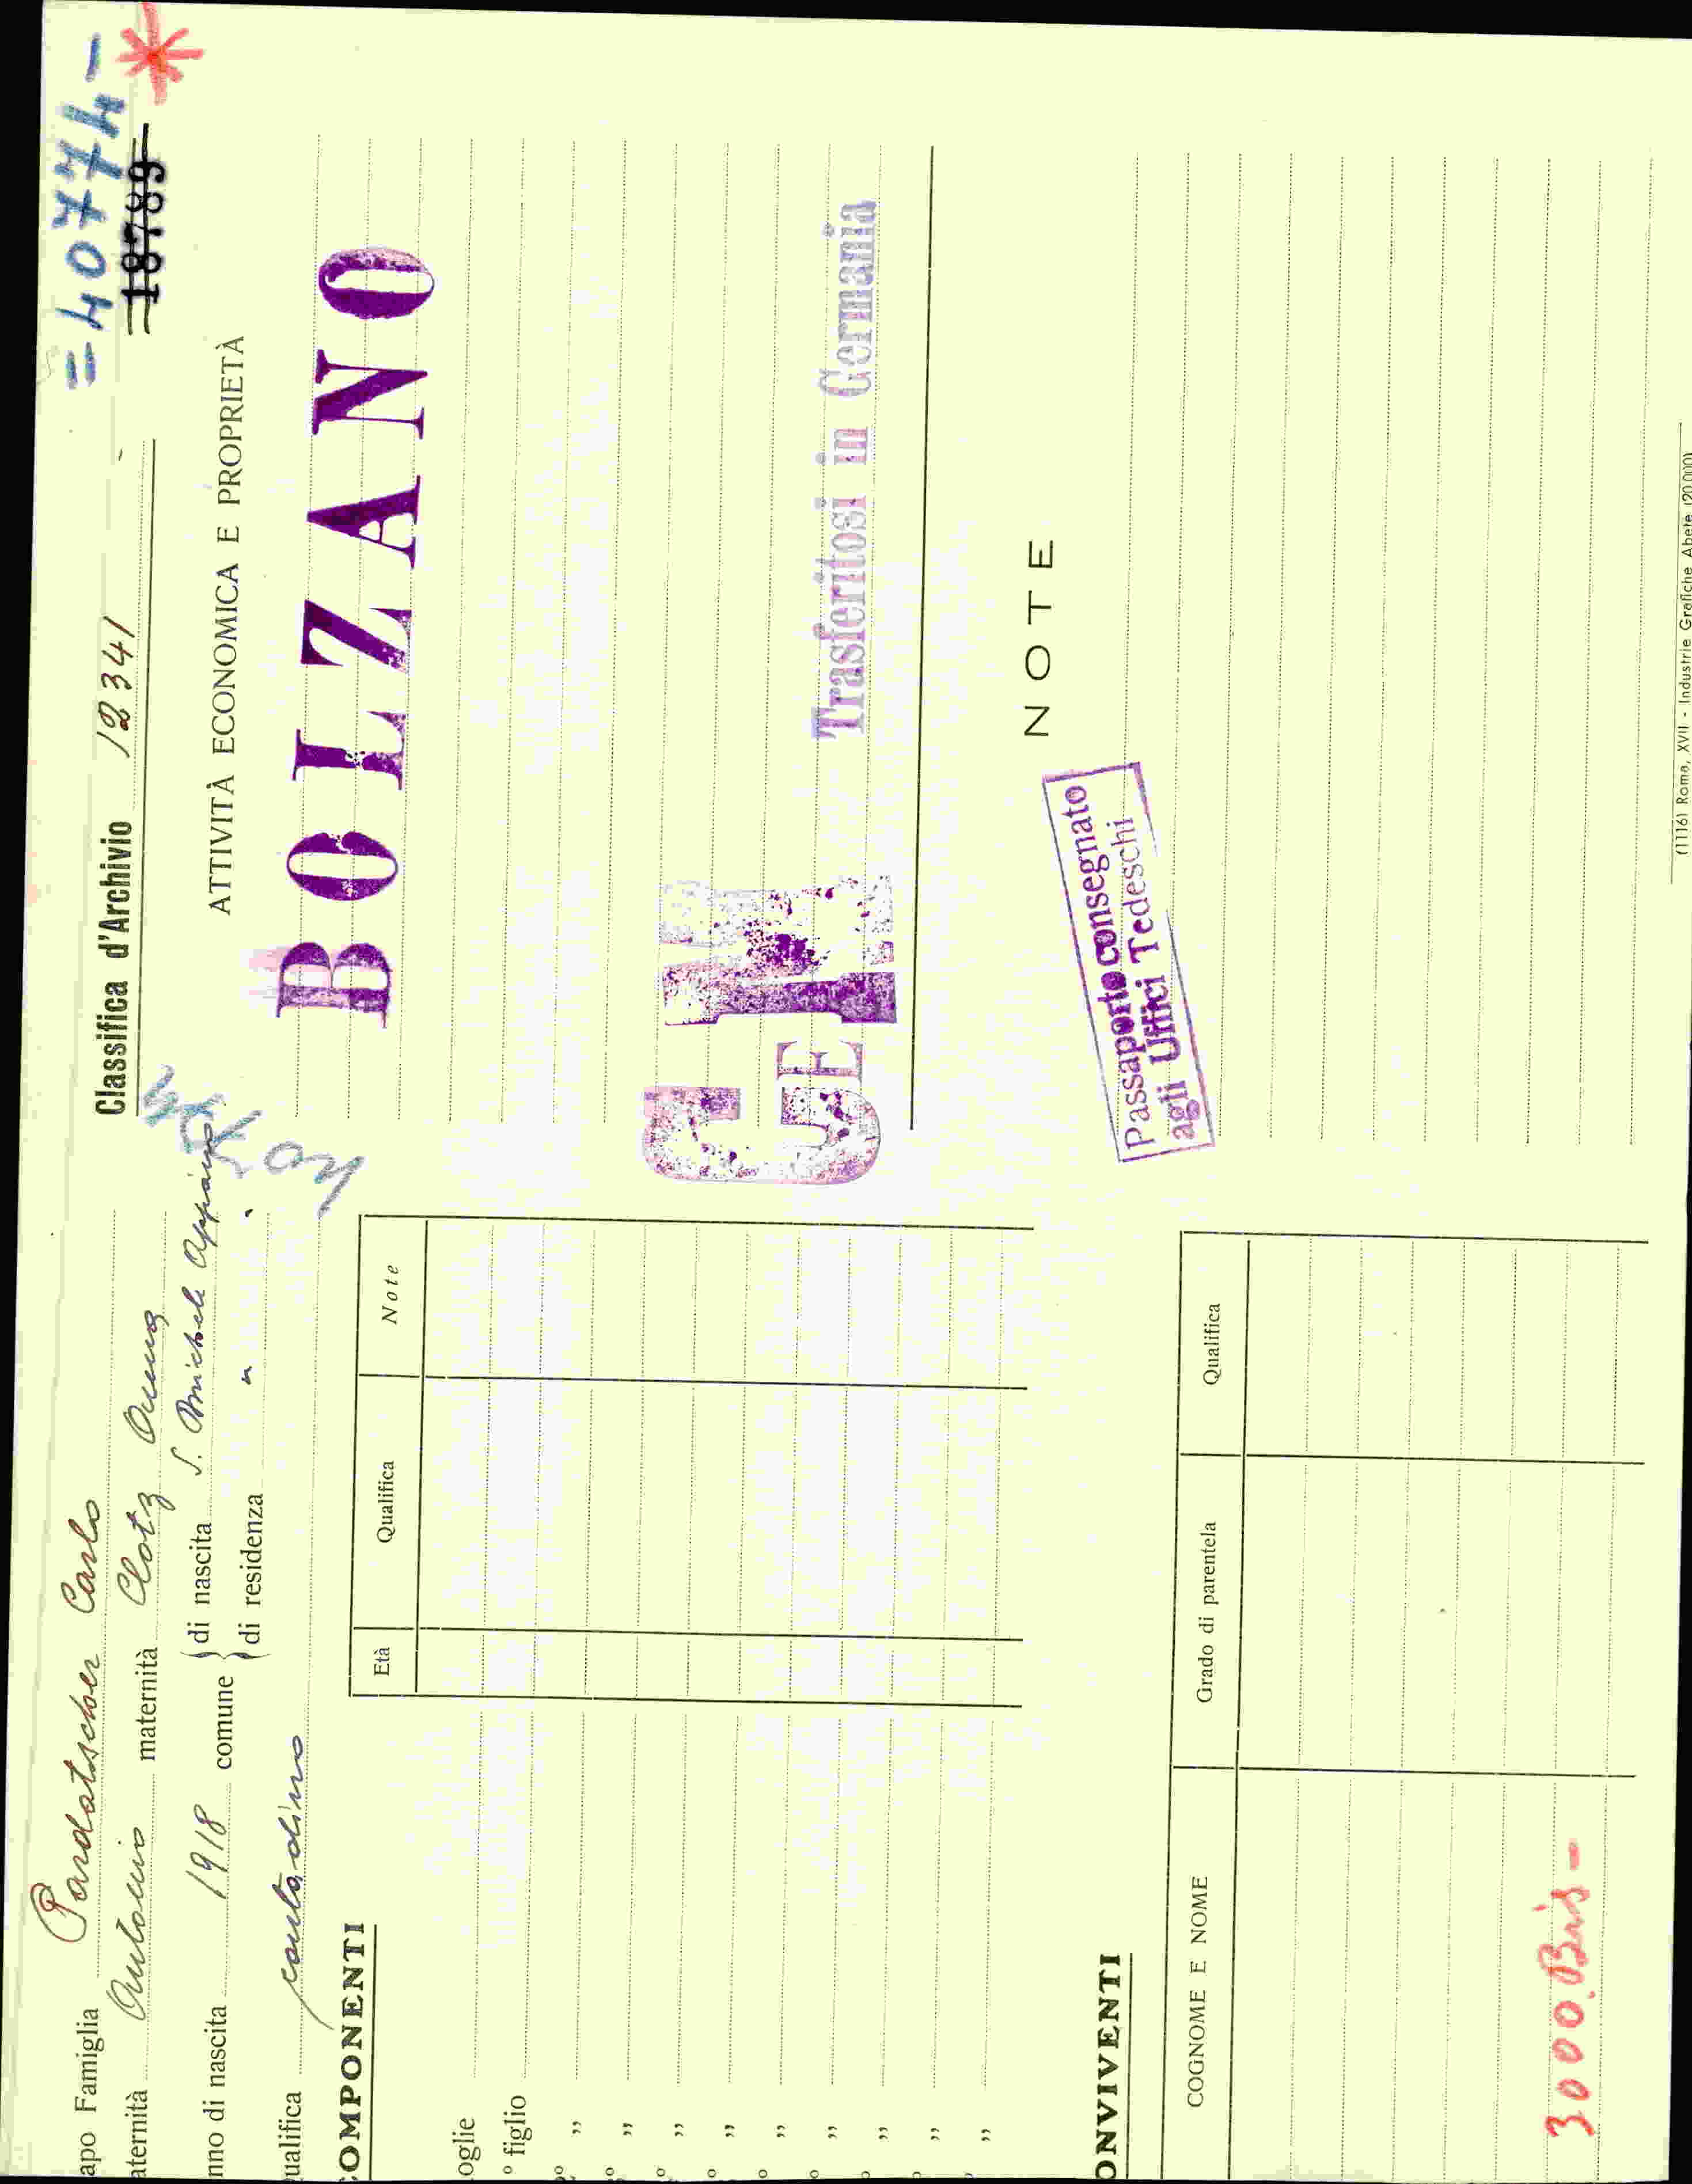 apo Famiglia Pardatscher Carlo
aternità Antonio maternità Clotz Anna
nno di nascita 1918 comune di nascita S. Michele Appiano
di residenza " "
ualifica contadino
COMPONENTI
Età Qualifica Note
oglie
° figlio
° "
° "
° "
° "
° "
° "
° "
° "
"
ONVIVENTI
COGNOME E NOME Grado di parentela Qualifica
3000.Bis-
=40774-
Classifica d'Archivio 12341
=18789-
ATTIVITÀ ECONOMICA E PROPRIETÀ
BOLZANO
GE
Trasferitosi in Germania
NOTE
Passaporto consegnato
agli Uffici Tedeschi
(1116) Roma, XVII - Industrie Grafiche Abete (20.000)